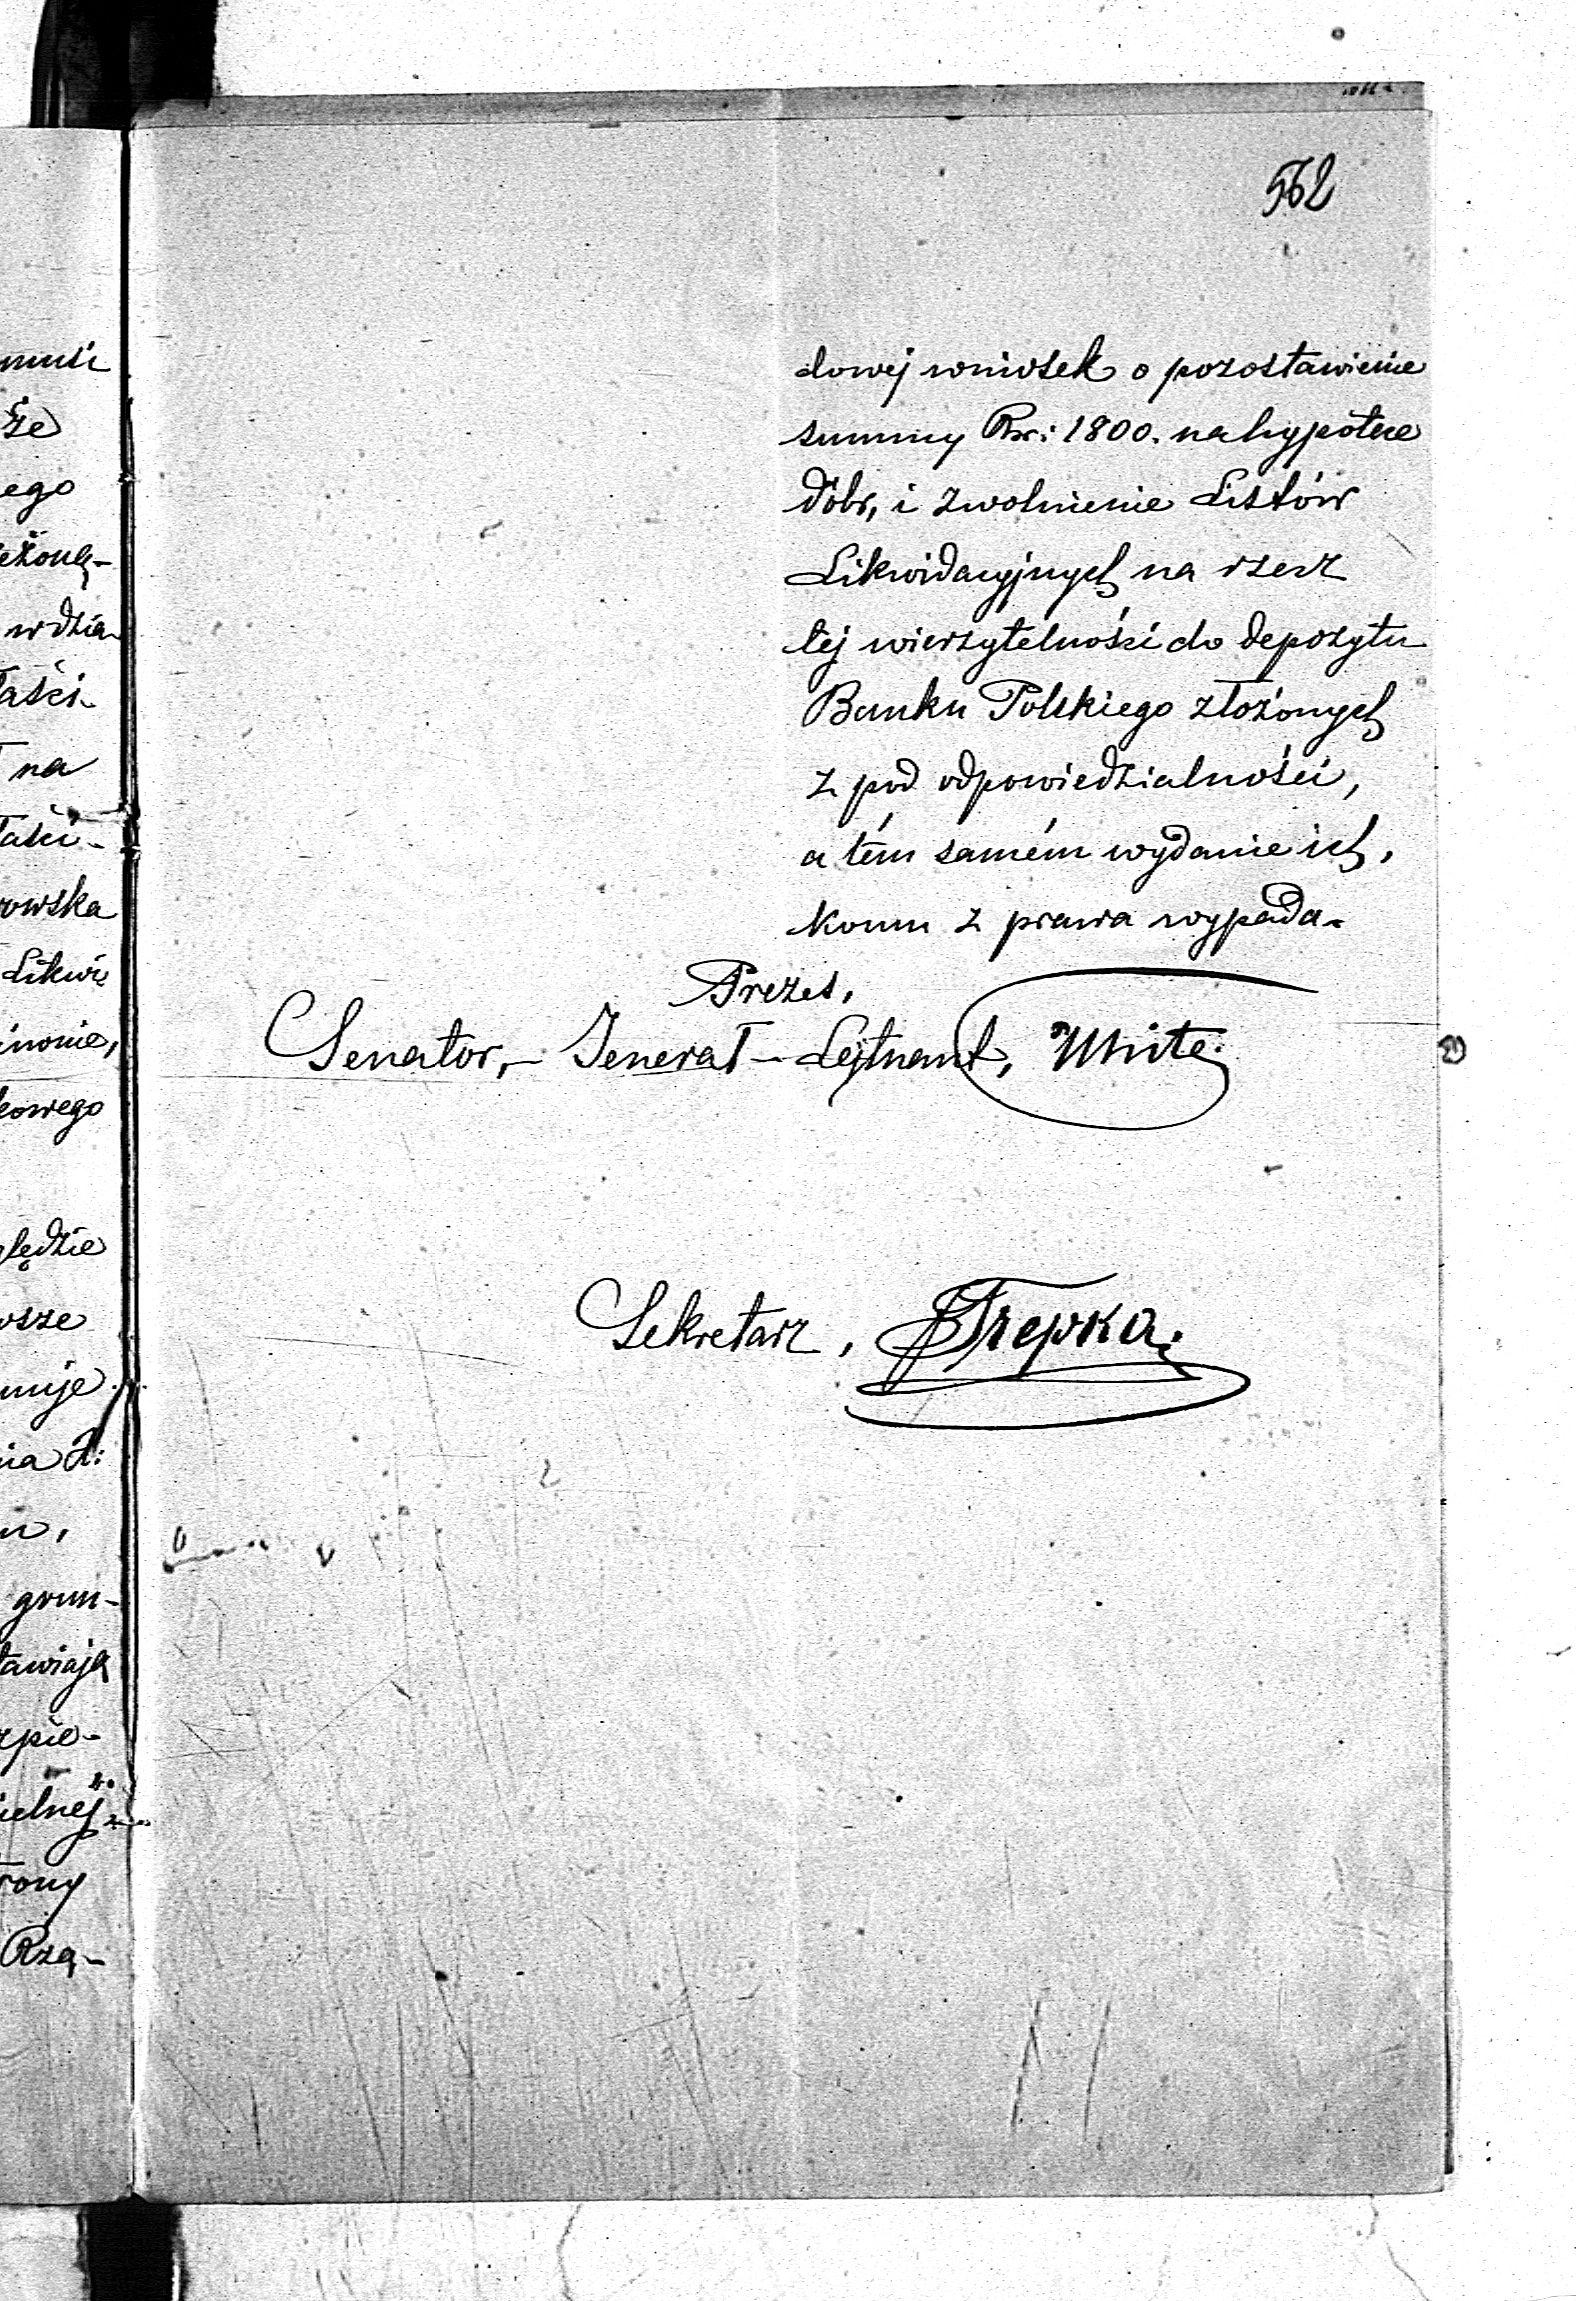 562
dowej wniosek o pozostawienie
summy Rsr: 1800. na hypotece
dóbr, i zwolnienie Listów
Likwidacyjnych na rzecz
tej wierzytelności do depozytu
Banku Polskiego złożonych
z pod odpowiedzialności,
a tém samém wydanie ich,
komu z prawa wypada.
Prezes,
Senator, - Jenerał - Lejtnant, White.
Sekretarz, Trepka.
że
ego
wdzia-
na
owska
Likwi
kowego
lędzie
wsze
muje
nia R:
grun-
tawiają
ielnej
rony
Rzą-